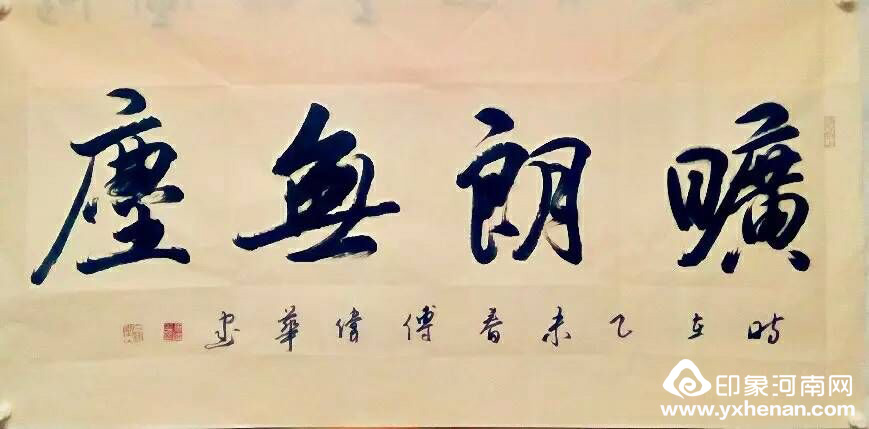 曠朗無塵
時在乙未春傅偉華书
印象河南网
www.yxhenan.com